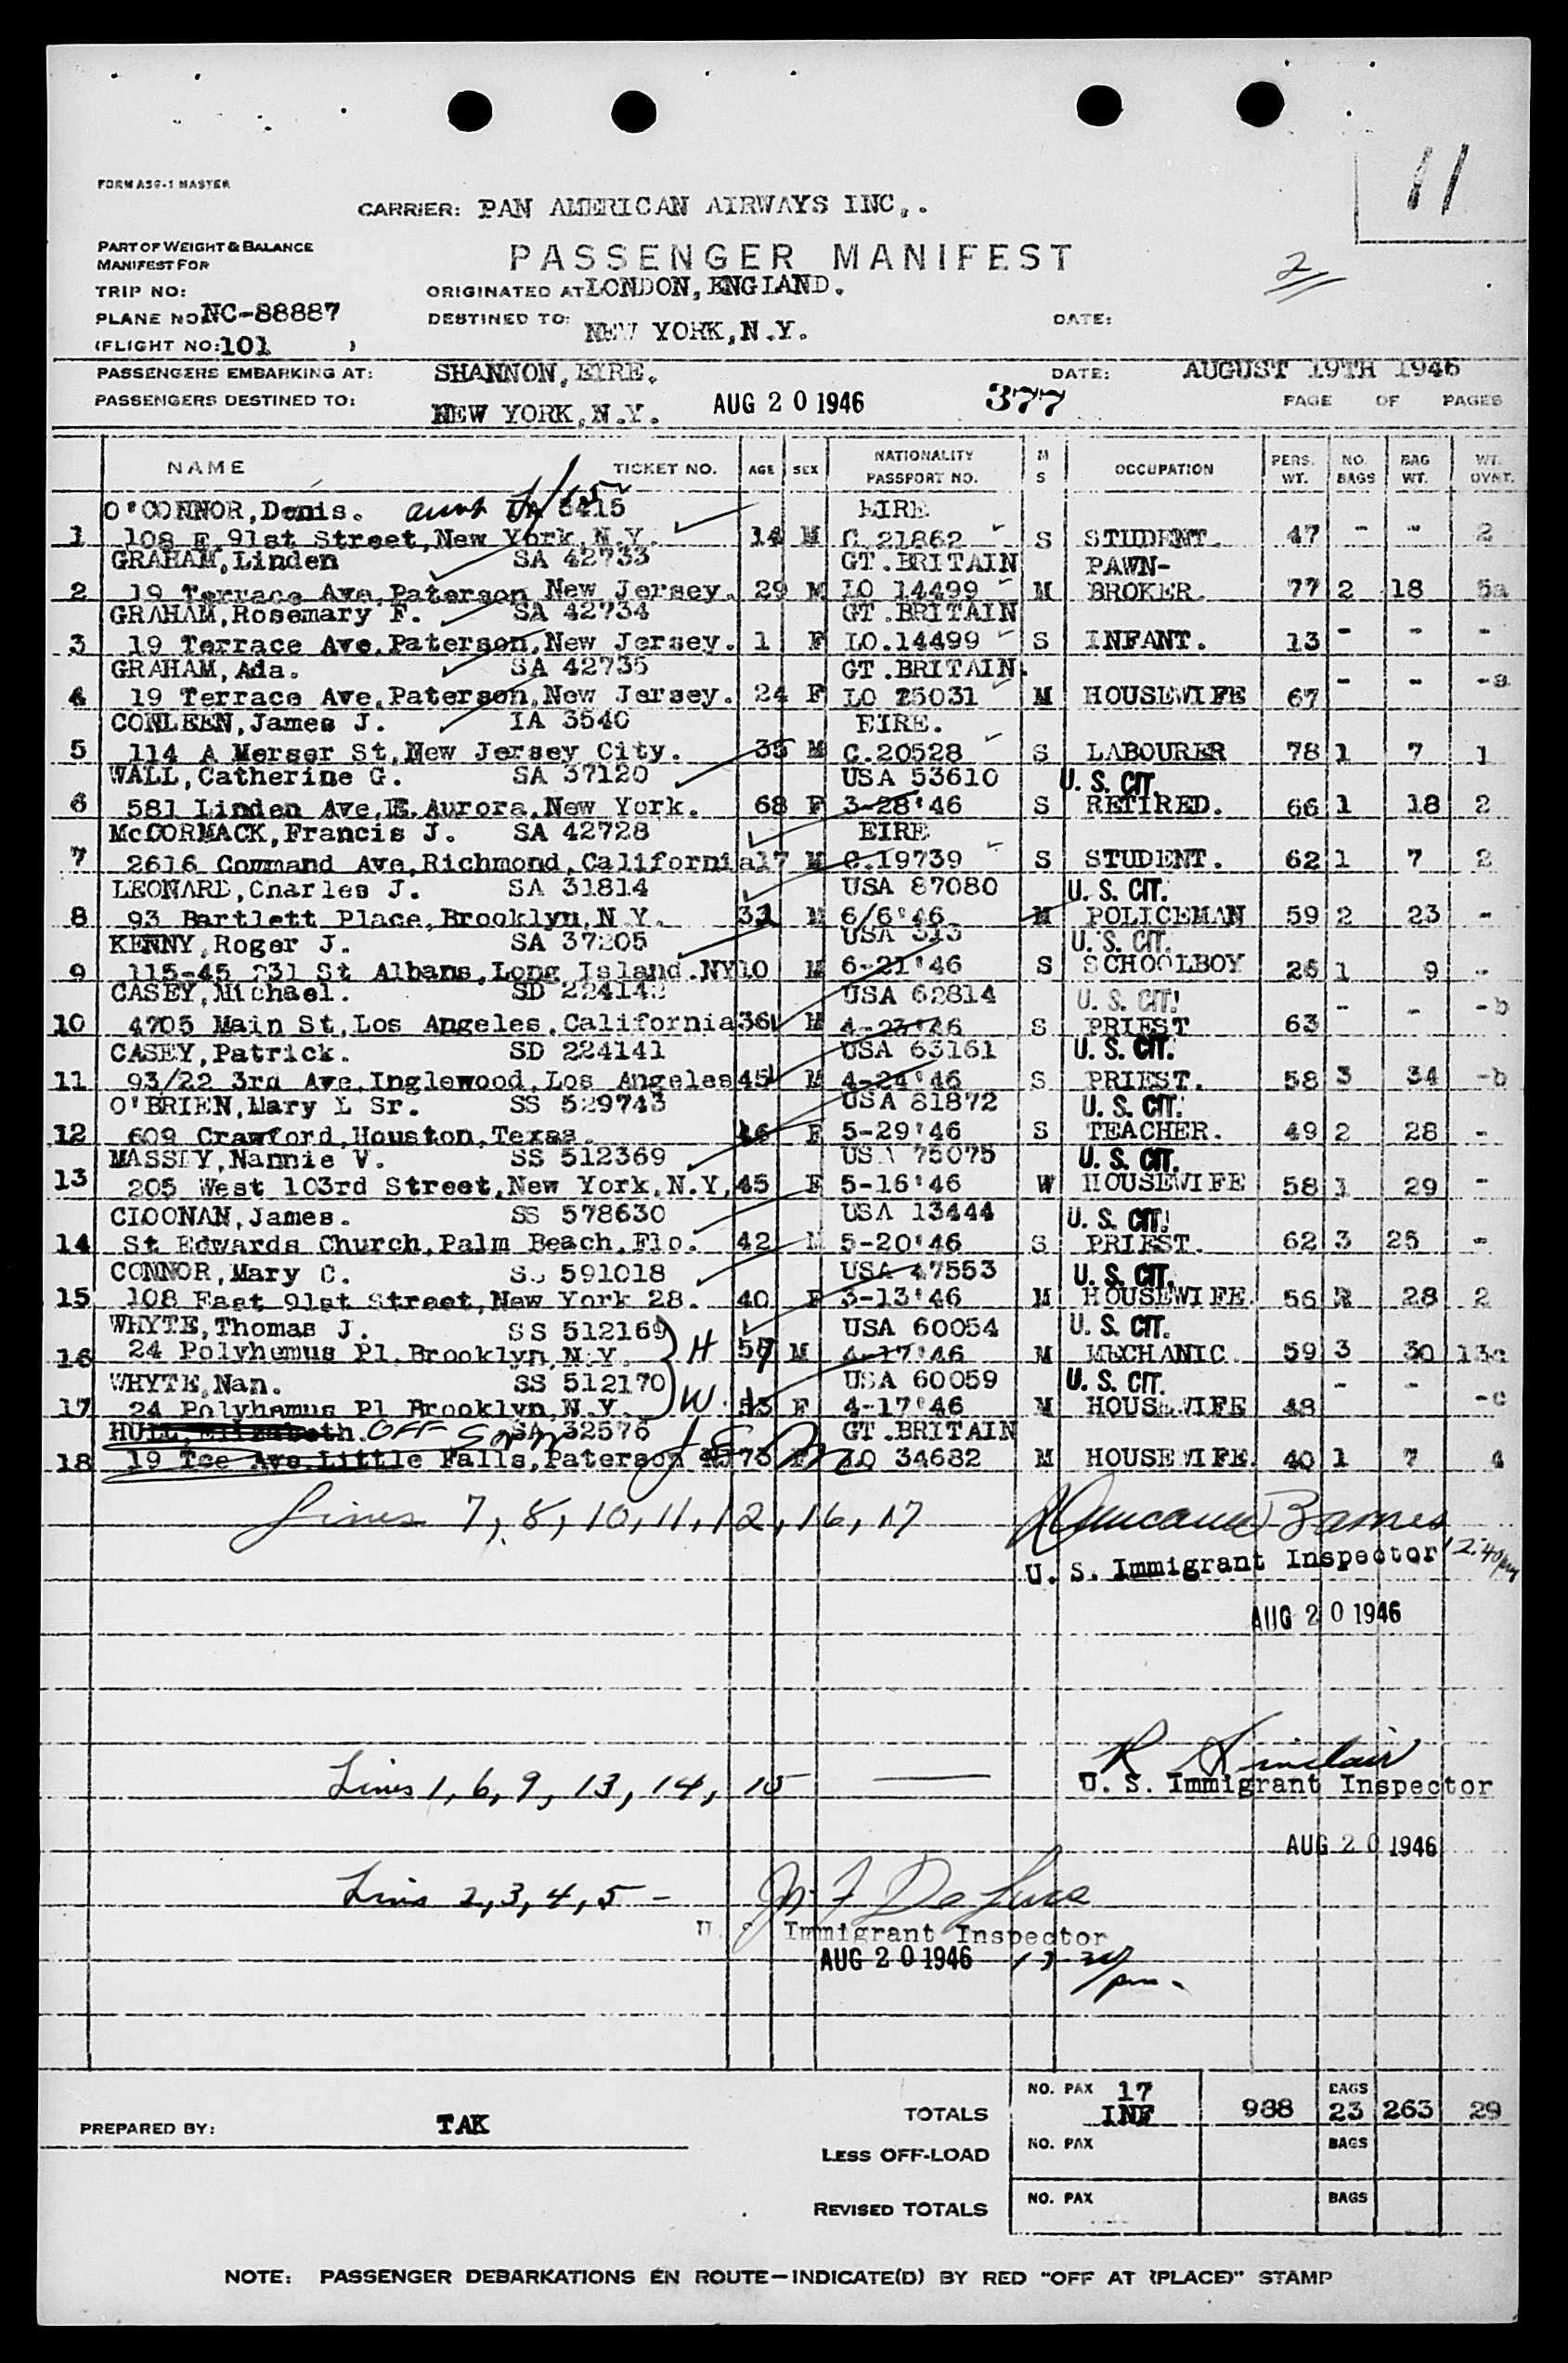 11
FORM ASG-1 MASTER
CARRIER: PAN AMERICAN AIRWAYS INC,.
PART OF WEIGHT & BALANCE
MANIFEST FOR
PASSENGER MANIFEST
2
TRIP NO:
ORIGINATED AT LONDON, ENGLAND.
PLANE NO: NC-88887
DESTINED TO: NEW YORK, N.Y.
DATE:
(FLIGHT NO: 101 )
PASSENGERS EMBARKING AT: SHANNON, EIRE. DATE: AUGUST 19TH 1946
PASSENGERS DESTINED TO: NEW YORK, N.Y. AUG 20 1946 377 PAGE OF PAGES
NAME TICKET NO. AGE SEX NATIONALITY PASSPORT NO. M S OCCUPATION PERS. WT. NO. BAGS BAG WT. WT.
O'CONNOR, Denis. aunt 3415 EIRE
1 108 E 91st Street, New York, N.Y. 14 M C 21862 S STUDENT. 47 - - 2
GRAHAM, Linden SA 42733 GT.BRITAIN PAWN-
2 19 Terrace Ave, Paterson New Jersey. 29 M LO 14499 M BROKER. 77 2 18 5a
GRAHAM, Rosemary F. SA 42734 GT.BRITAIN
3 19 Terrace Ave, Paterson, New Jersey. 1 F LO.14499 S INFANT. 13 - - -
GRAHAM, Ada. SA 42735 GT.BRITAIN.
4 19 Terrace Ave, Paterson, New Jersey. 24 F LO 25031 M HOUSEWIFE 67 - - -a
CONLEEN, James J. IA 3540 EIRE.
5 114 A Merser St, New Jersey City. 35 M C.20528 S LABOURER 78 1 7 1
WALL, Catherine G. SA 37120 USA 53610 U. S. CIT.
6 581 Linden Ave, E. Aurora, New York. 68 F 3-28'46 S RETIRED. 66 1 18 2
McCORMACK, Francis J. SA 42728 EIRE
7 2616 Command Ave, Richmond, California 17 M C.19739 S STUDENT. 62 1 7 2
LEONARD, Charles J. SA 31814 USA 87080 U. S. CIT.
8 93 Bartlett Place, Brooklyn, N.Y. 31 M 6/6'46 M POLICEMAN 59 2 23 -
KENNY, Roger J. SA 37205 USA 313 U. S. CIT.
9 115-45 231 St Albans, Long Island. NY 10 M 6-21'46 S SCHOOLBOY 26 1 9 -
CASEY, Michael. SD 224142 USA 62814 U. S. CIT.
10 4705 Main St, Los Angeles, California 36 M 4-23'46 S PRIEST 63 - - -b
CASEY, Patrick. SD 224141 USA 63161 U. S. CIT.
11 93/22 3rd Ave, Inglewood, Los Angeles 45 M 4-24'46 S PRIEST. 58 3 34 -b
O'BRIEN, Mary L Sr. SS 529743 USA 81872 U. S. CIT.
12 609 Crawford, Houston, Texas. 46 F 5-29'46 S TEACHER. 49 2 28 -
MASSEY, Nannie V. SS 512369 USA 75075 U. S. CIT.
13 205 West 103rd Street, New York, N.Y, 45 F 5-16'46 W HOUSEWIFE 58 1 29 -
CLOONAN, James. SS 578630 USA 13444 U. S. CIT.
14 St Edwards Church, Palm Beach, Flo. 42 M 5-20'46 S PRIEST. 62 3 25 -
CONNOR, Mary C. SS 591018 USA 47553 U. S. CIT.
15 108 East 91st Street, New York 28. 40 F 3-13'46 M HOUSEWIFE. 56 2 28 2
WHYTE, Thomas J. SS 512169 USA 60054 U. S. CIT.
16 24 Polyhemus Pl, Brooklyn, N.Y. H 57 M 4-17'46 M MECHANIC. 59 3 30 13c
WHYTE, Nan. SS 512170 USA 60059 U. S. CIT.
17 24 Polyhemus Pl Brooklyn, N.Y. W 53 F 4-17'46 M HOUSEWIFE 48 - - -c
HULL, Elizabeth. Off SA 32576 GT.BRITAIN
18 19 Tce Ave, Little Falls, Paterson NJ 73 F LO 34682 M HOUSEWIFE. 40 1 7 4
Lines 7, 8, 10, 11, 12, 16, 17
U. S. Immigrant Inspector 12:40 pm
AUG 20 1946
Lines 1, 6, 9, 13, 14, 15 R Sinclair
U. S. Immigrant Inspector
AUG 20 1946
Lines 2, 3, 4, 5 -
U. S. Immigrant Inspector
AUG 20 1946 pm.
NO. PAX 17 BAGS
TOTALS INF 988 23 263 29
PREPARED BY: TAK
LESS OFF-LOAD NO. PAX BAGS
REVISED TOTALS NO. PAX BAGS
NOTE: PASSENGER DEBARKATIONS EN ROUTE—INDICATE(D) BY RED "OFF AT (PLACE)" STAMP